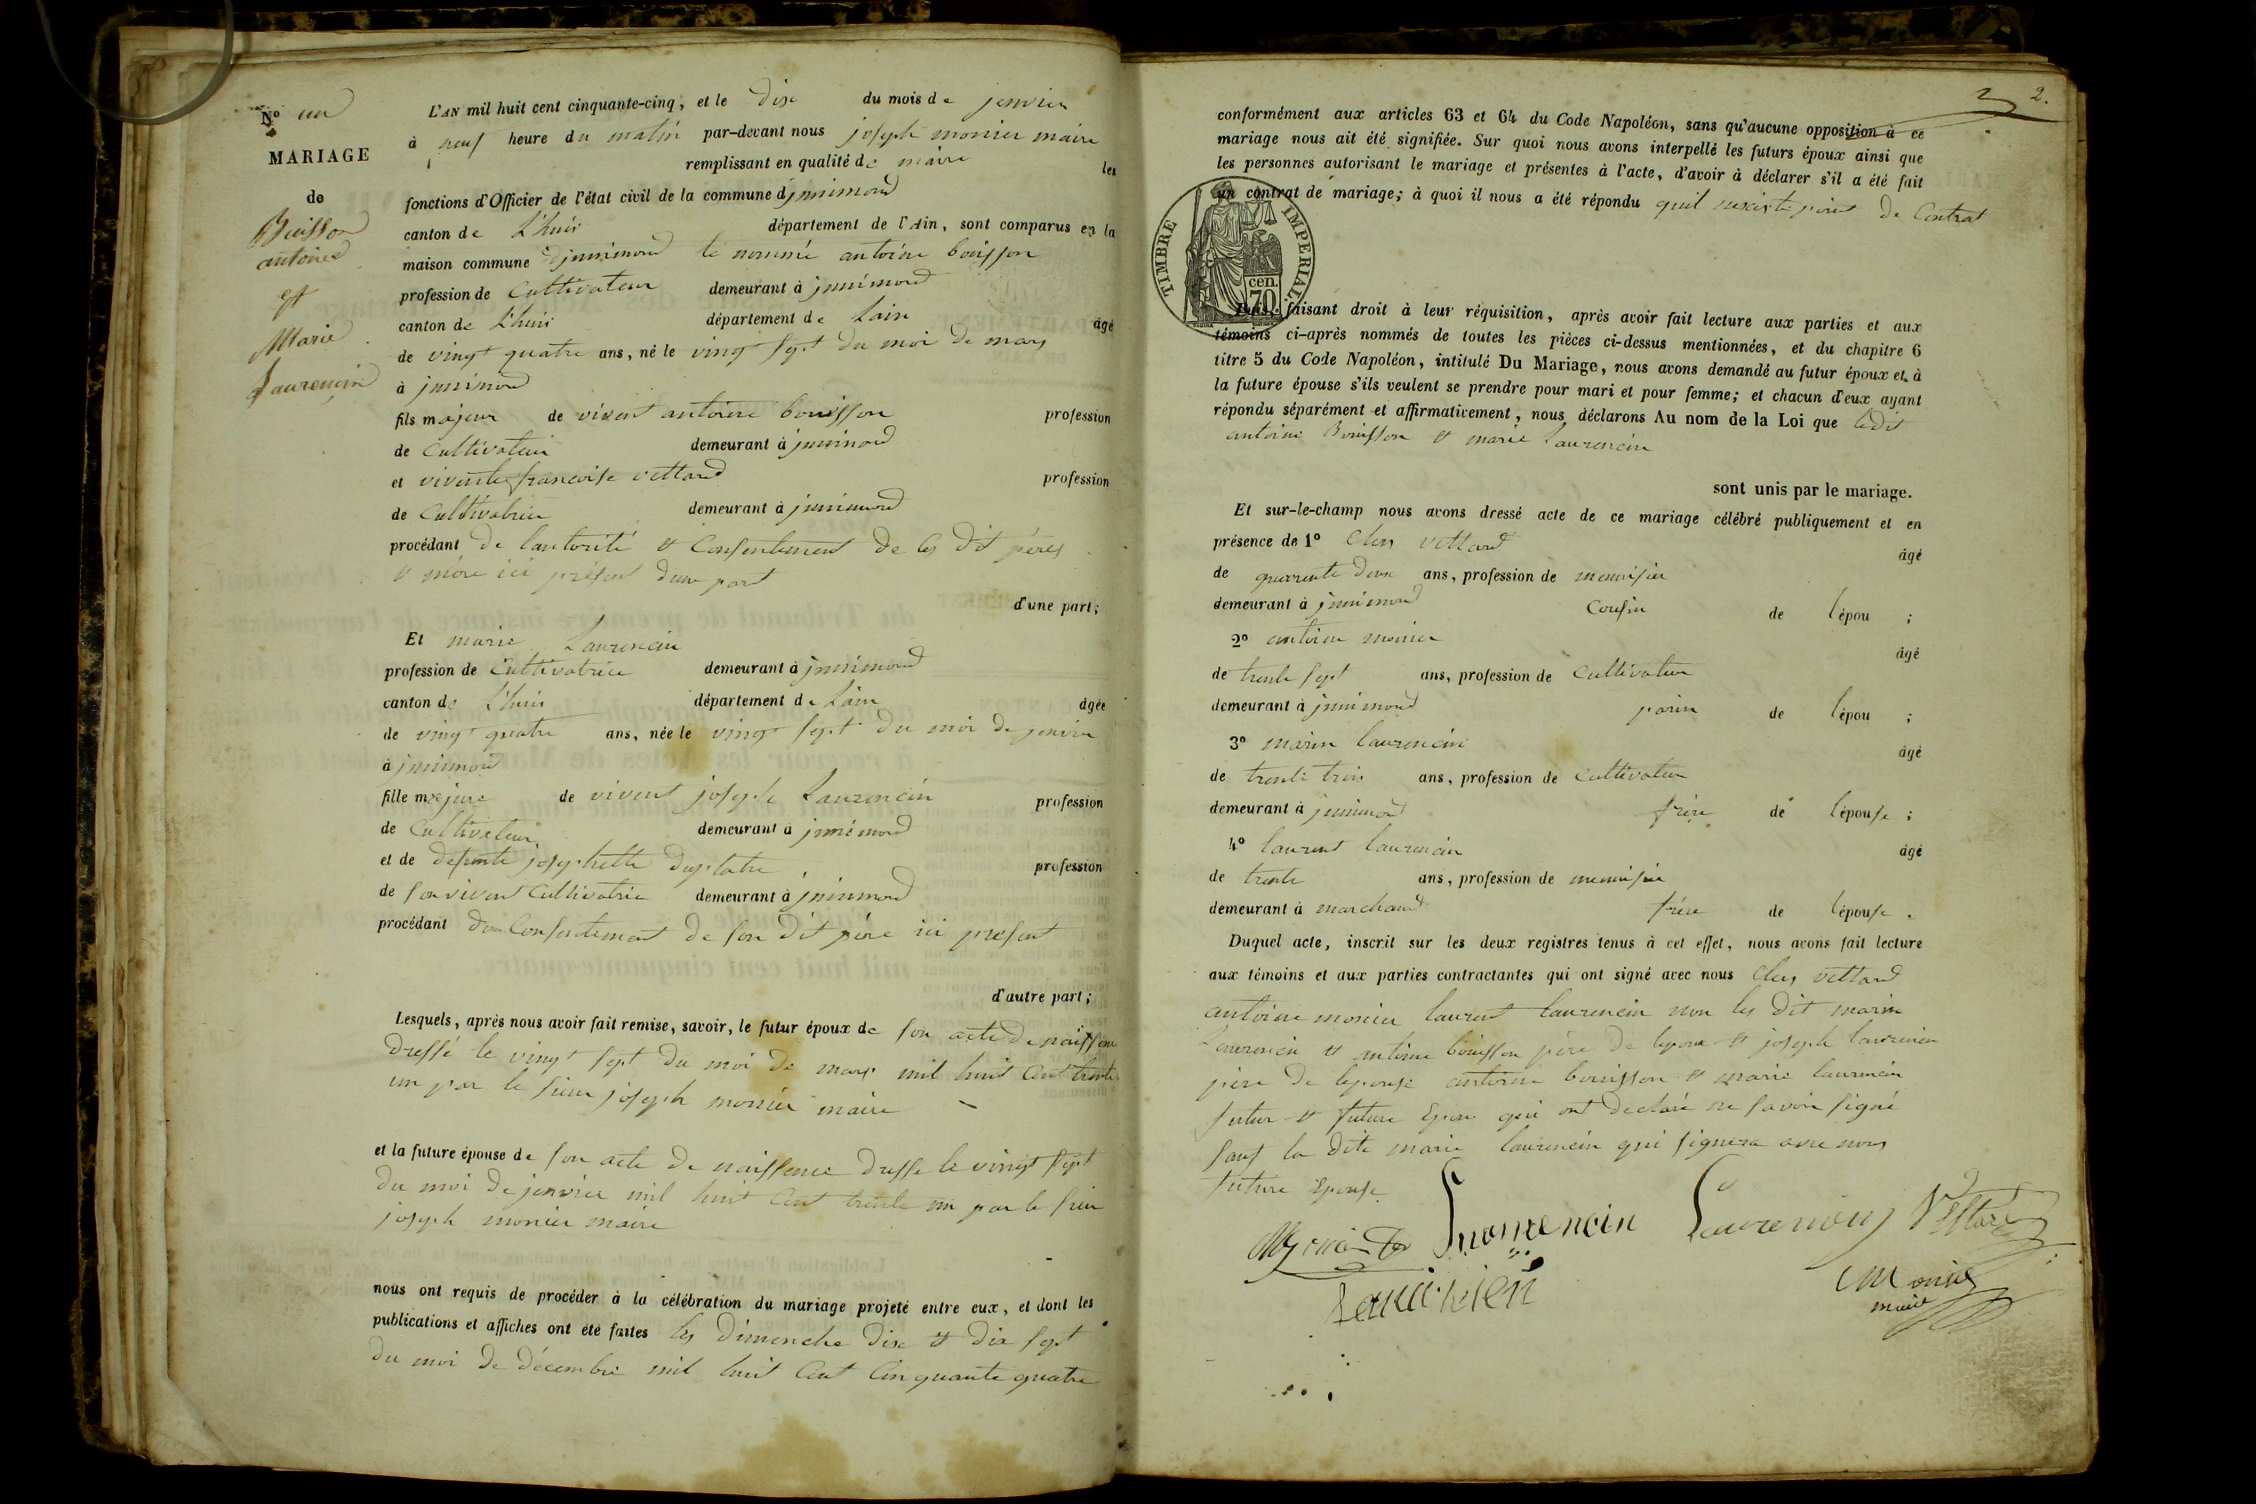 No un
MARIAGE
de
Buisson
antoine
et
Marie
Laurencin
L'AN mil huit cent cinquante-cinq, et le dix du mois de jenvier
à neuf heure du matin par-devant nous joseph monier maire
remplissant en qualité de maire les
fonctions d'Officier de l'état civil de la commune d'innimond
canton de L'huis département de l'Ain, sont comparus en la
maison commune d'innimond le nommé antoine bouisson
profession de Cultivateur demeurant à innimond
canton de L'huis département de Lain âgé
de vingt quatre ans, né le vingt sept du moi de mars
à innimond
fils majeur de vivent antoine bouisson profession
de Cultivateur demeurant à innimond
et vivente francoise vettard profession
de Cultivatrice demeurant à innimond
procédant de lautorité et Consentement de les dit pères
et mère ici présent dune part
d'une part;
Et marie Laurencin
profession de Cultivatrice demeurant à innimond
canton de L'huis département de Lain âgée
de vingt quatre ans, née le vingt sept du moi de jenvier
à innimond
fille majeure de vivent joseph Laurencin profession
de Cultivateur demeurant à innimond
et de defunte josephette duplatre profession
de son vivent Cultivatrice demeurant à innimond
procédant du Consentement de son dit père ici present
d'autre part;
Lesquels, après nous avoir fait remise, savoir, le futur époux de son acte de naissence
dressé le vingt sept du moi de mars mil huit Cent trente
un par le sieur joseph monier maire
et la future épouse de son acte de naissence dresse le vingt sept
du moi de jenvier mil huit Cent trente un par le sieur
joseph monier maire
nous ont requis de procéder à la célébration du mariage projeté entre eux, et dont les
publications et affiches ont été faites les dimenche dix et dix sept
du moi de décembre mil huit Cent Cinquante quatre
2 2.
conformément aux articles 63 et 64 du Code Napoléon, sans qu'aucune opposition à ce
mariage nous ait été signifiée. Sur quoi nous avons interpellé les futurs époux ainsi que
les personnes autorisant le mariage et présentes à l'acte, d'avoir à déclarer s'il a été fait
un contrat de mariage; à quoi il nous a été répondu quil nexiste point de Contrat
TIMBRE IMPERIAL
cen.
70
Puis, faisant droit à leur réquisition, après avoir fait lecture aux parties et aux
témoins ci-après nommés de toutes les pièces ci-dessus mentionnées, et du chapitre 6
titre 5 du Code Napoléon, intitulé Du Mariage, nous avons demandé au futur époux et à
la future épouse s'ils veulent se prendre pour mari et pour femme; et chacun d'eux ayant
répondu séparément et affirmativement, nous déclarons Au nom de la Loi que ledit
antoine Bouisson et marie Laurencin
sont unis par le mariage.
Et sur-le-champ nous avons dressé acte de ce mariage célébré publiquement et en
présence de 1o vettard âgé
de quarrente deux ans, profession de menuisier
demeurant à innimond Cousin de lépou ;
2o antoine monier âgé
de trente sept ans, profession de Cultivateur
demeurant à innimond parin de lépou ;
3o marin laurencin âgé
de trente trois ans, profession de Cultivateur
demeurant à innimond frère de lépouse ;
4o laurent laurencin âgé
de trente ans, profession de menuisier
demeurant à marchand frère de lépouse .
Duquel acte, inscrit sur les deux registres tenus à cet effet, nous avons fait lecture
aux témoins et aux parties contractantes qui ont signé avec nous vettard
antoine monier laurent laurencin non les dit marin
Laurencin et antoine bouisson père de lepoux et joseph laurencin
père de lepouse antoine bouisson et marie laurencin
futur et future Epoux qui ont declaré ne savoir signé
sauf la dite marie laurencin qui signera avec nous
future Epouse
Laurencin Vettard
Monier
maire